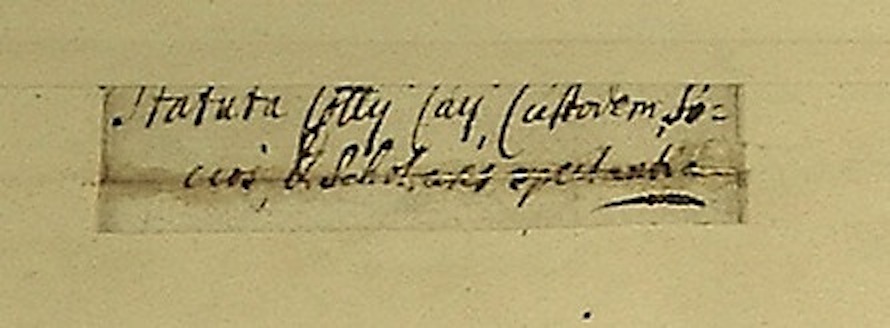 Statuta Collij Caij, Custodem, So=
cios, & Scholares spectantia